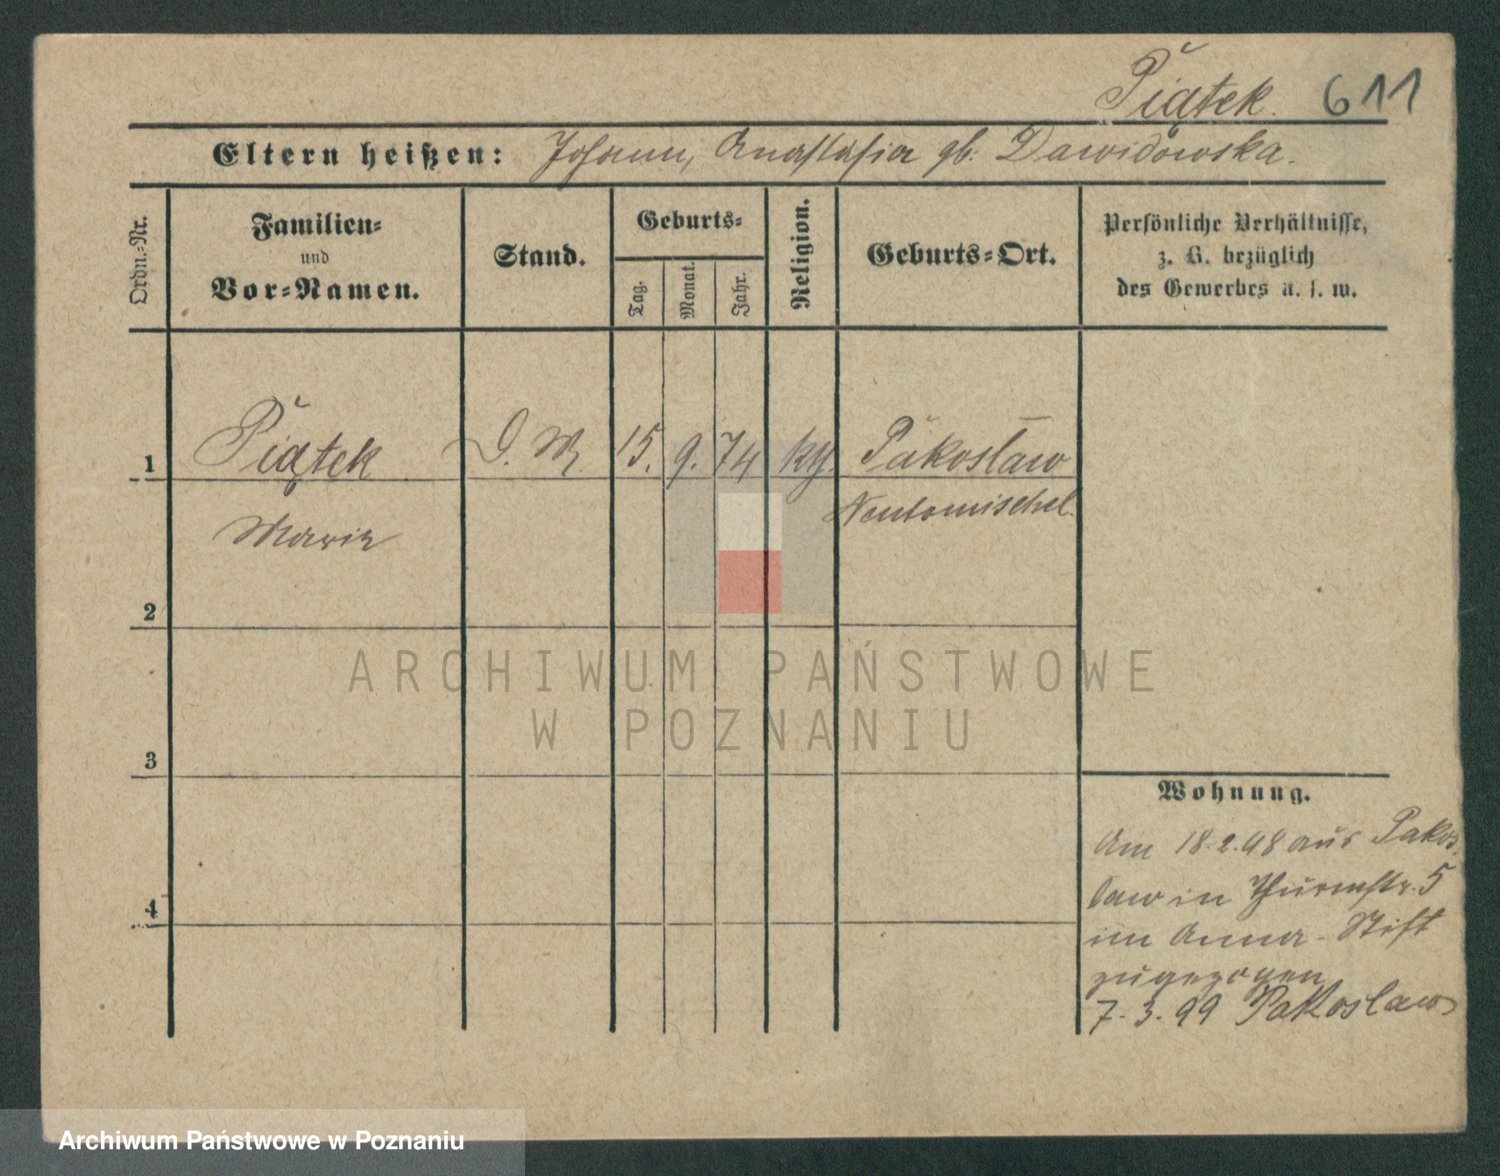 Piątek. 611
Eltern heißen: Johann, Anastasia gb: Dawidowska.
Ordn.-Nr.
Familien-
und
Vor-Namen.
Stand.
Geburts-
Tag.
Monat.
Jahr.
Religion.
Geburts-Ort.
Persönliche Verhältnisse,
z. B. bezüglich
des Gewerbes u. s. w.
1 Piątek D. M. 15. 9. 74 kg. Pakosław
Maria Neutomischel.
2
ARCHIWUM PAŃSTWOWE
W POZNANIU
3
Wohnung.
Am 18.2.98 aus Pakos
ław in Thurmstr. 5
im Anna-Stift
zugezogen
4
7.3.99 Pakoslaw
Archiwum Państwowe w Poznaniu